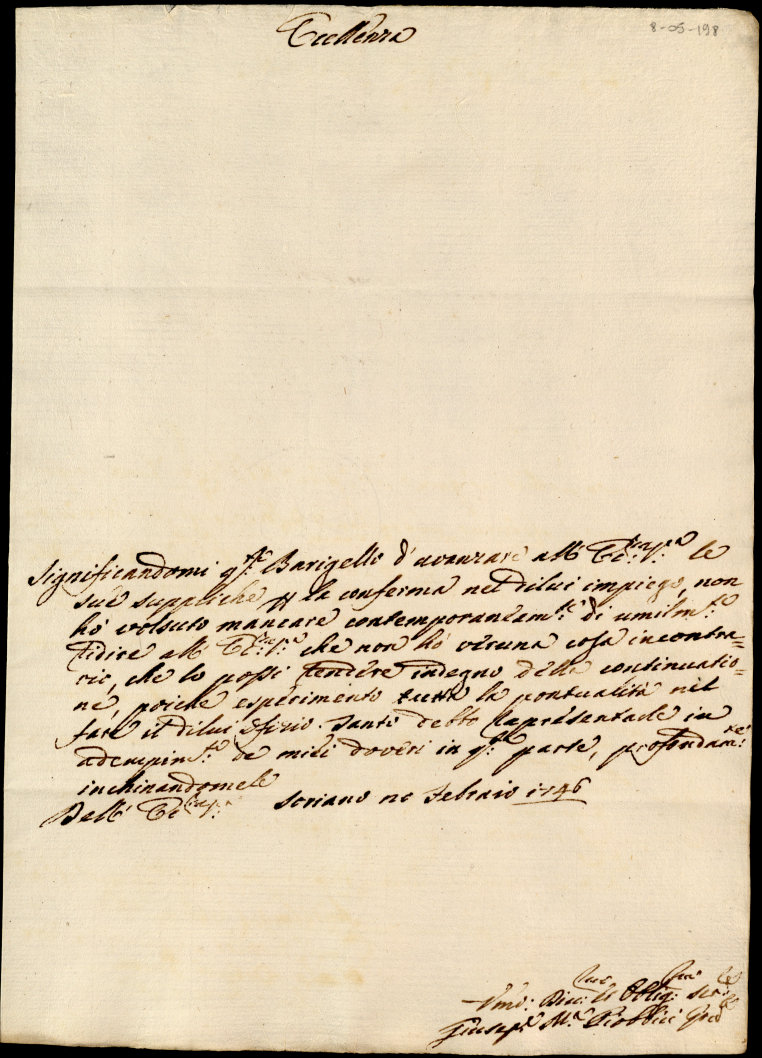 Eccellenza
8-05-198
Significandomi q.to Barigello d'avanzare all'Ecc.za V.ra le
sue suppliche p la conferma nel dilui impiego, non
hò volsuto mancare contemporaneam.te di umilm.te
ridire all'Ecc.za V.ra che non hò veruna cosa incontra=
rio, che lo possi rendere indegno della continuatio=
ne, poiche esperimento tutta la pontualità nel
fare il dilui Ofizio. Tanto debbo rapresentarle in
adempim.to de miei doveri in q.ta parte, profondam.te
inchinandomele
Dell'Ecc.za V.ra Soriano Febraio 1746
Vmo: Dev: et Oblig: Ser:
Giusep.e M.a